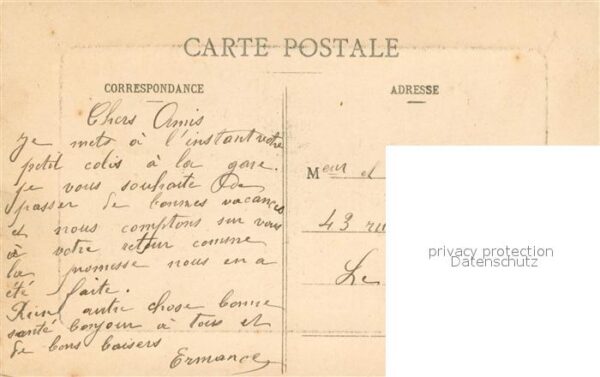 CARTE POSTALE
CORRESPONDANCE
ADRESSE
Chers Amis
Je mets à l'instant votre
petit colis à la gare.
Je vous souhaite de
passer de bonnes vacances
et nous comptons sur vous
à votre retour comme
la promesse nous en a
été faite.
Rien autre chose bonne
santé bonjour à tous et
de bons baisers
Ermance
Meur et
43 ru
Le
privacy protection
Datenschutz